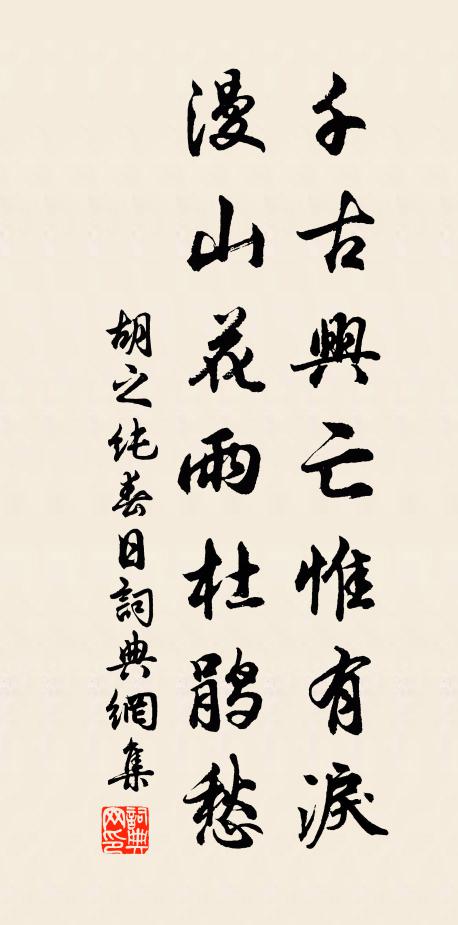 千古興亡惟有淚
漫山花雨杜鵑愁
胡之純春日詞典網集
詞典網印